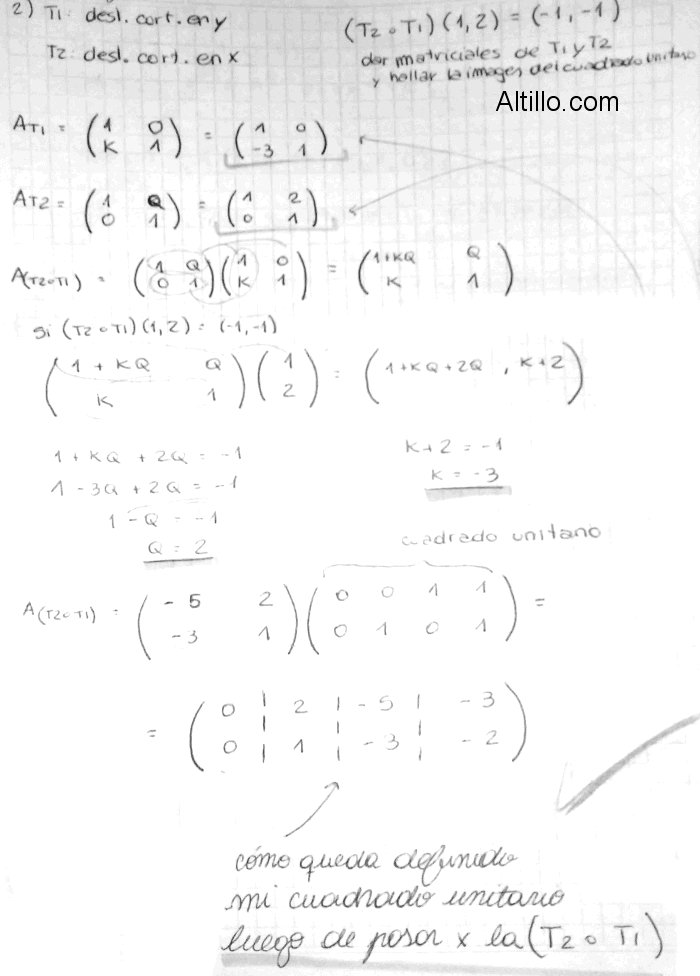 2) T1: desl. cort. en y
(T2 ∘ T1) (1,2) = (-1,-1)
T2: desl. cort. en x
dar matriciales de T1 y T2
y hallar la imagen del cuadrado unitario
Altillo.com
AT1 = (1 0 / K 1) = (1 0 / -3 1)
AT2 = (1 Q / 0 1) = (1 2 / 0 1)
A(T2∘T1) = (1 Q / 0 1) (1 0 / K 1) = (1+KQ Q / K 1)
si (T2 ∘ T1) (1,2) = (-1,-1)
(1 + KQ Q / K 1) (1 / 2) = (1+KQ+2Q , K+2)
1 + KQ + 2Q = -1
K+2 = -1
1 - 3Q + 2Q = -1
K = -3
1 - Q = -1
Q = 2
cuadrado unitario
A(T2∘T1) = (-5 2 / -3 1) (0 0 1 1 / 0 1 0 1) =
= (0 | 2 | -5 | -3 / 0 | 1 | -3 | -2)
cómo queda definido
mi cuadrado unitario
luego de pasar x la (T2 ∘ T1)